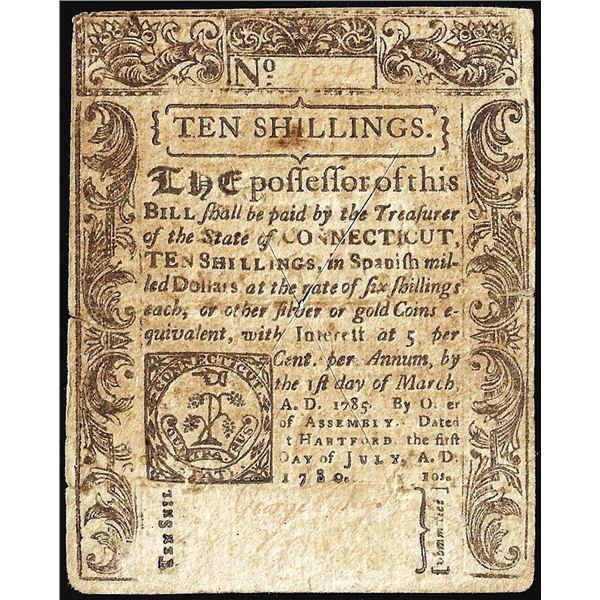 No.
TEN SHILLINGS.
THE poſſeſſor of this
BILL ſhall be paid by the Treaſurer
of the State of CONNECTICUT,
TEN SHILLINGS, in Spaniſh mil-
led Dollars at the rate of ſix ſhillings
each, or other ſilver or gold Coins e-
quivalent, with Intereſt at 5 per
Cent. per Annum, by
the 1ſt day of March,
A. D. 1785. By Order
of ASSEMBLY. Dated
at HARTFORD the firſt
DAY of JULY, A. D.
1780. 10s.
CONNECTICUT
Committee